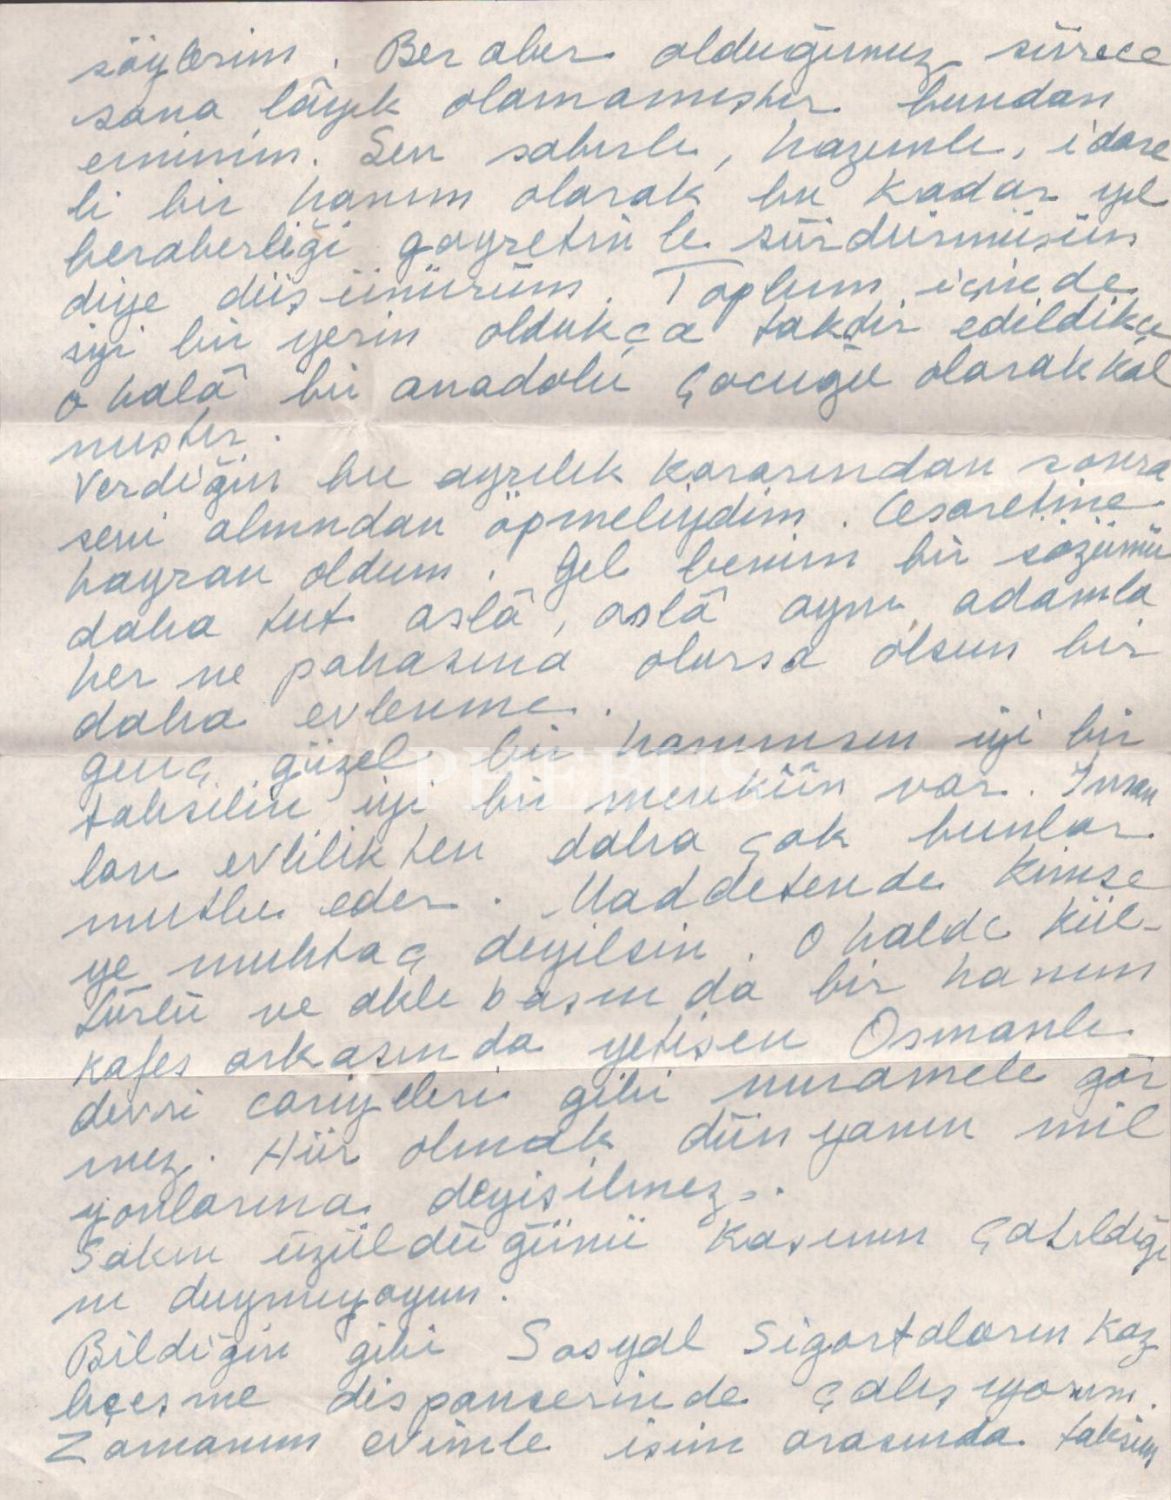 söylerim. Beraber olduğumuz sürece
sana lâyık olamamıştır bundan
eminim. Sen sabırla, hazımla, idare
li bir hanım olarak bu kadar yıl
beraberliği gayretinle sürdürmüşsün
diye düşünürüm. Toplum içinde
iyi bir yerin oldukça takdir edildikçe
o halâ bir anadolu çocuğu olarak kal
mıştır.
Verdiğin bu ayrılık kararından sonra
seni alnından öpmeliydim. Cesaretine
hayran oldum. Gel benim bir sözümü
daha tut aslâ, aslâ aynı adamla
her ne pahasına olursa olsun bir
daha evlenme.
genç güzel bir hanımsın iyi bir
tahsilin iyi bir mevkiin var. İnsan
ları evlilikten daha çok bunlar
mutlu eder. Maddetende kimse
ye muhtaç deyilsin. O halde kül-
türlü ve aklı başında bir hanım
kafes arkasında yetişen Osmanlı
devri cariyeleri gibi muamele gör
mez. Hür olmak dünyanın mil
yonlarına deyişilmez..
Sakın üzüldüğünü kaşının çatıldığı
nı duymıyayım.
Bildiğin gibi Sosyal Sigortaların Kaz
lıçeşme dispanserinde çalışıyorum.
Zamanım evimle işim arasında taksim
PHEBUS